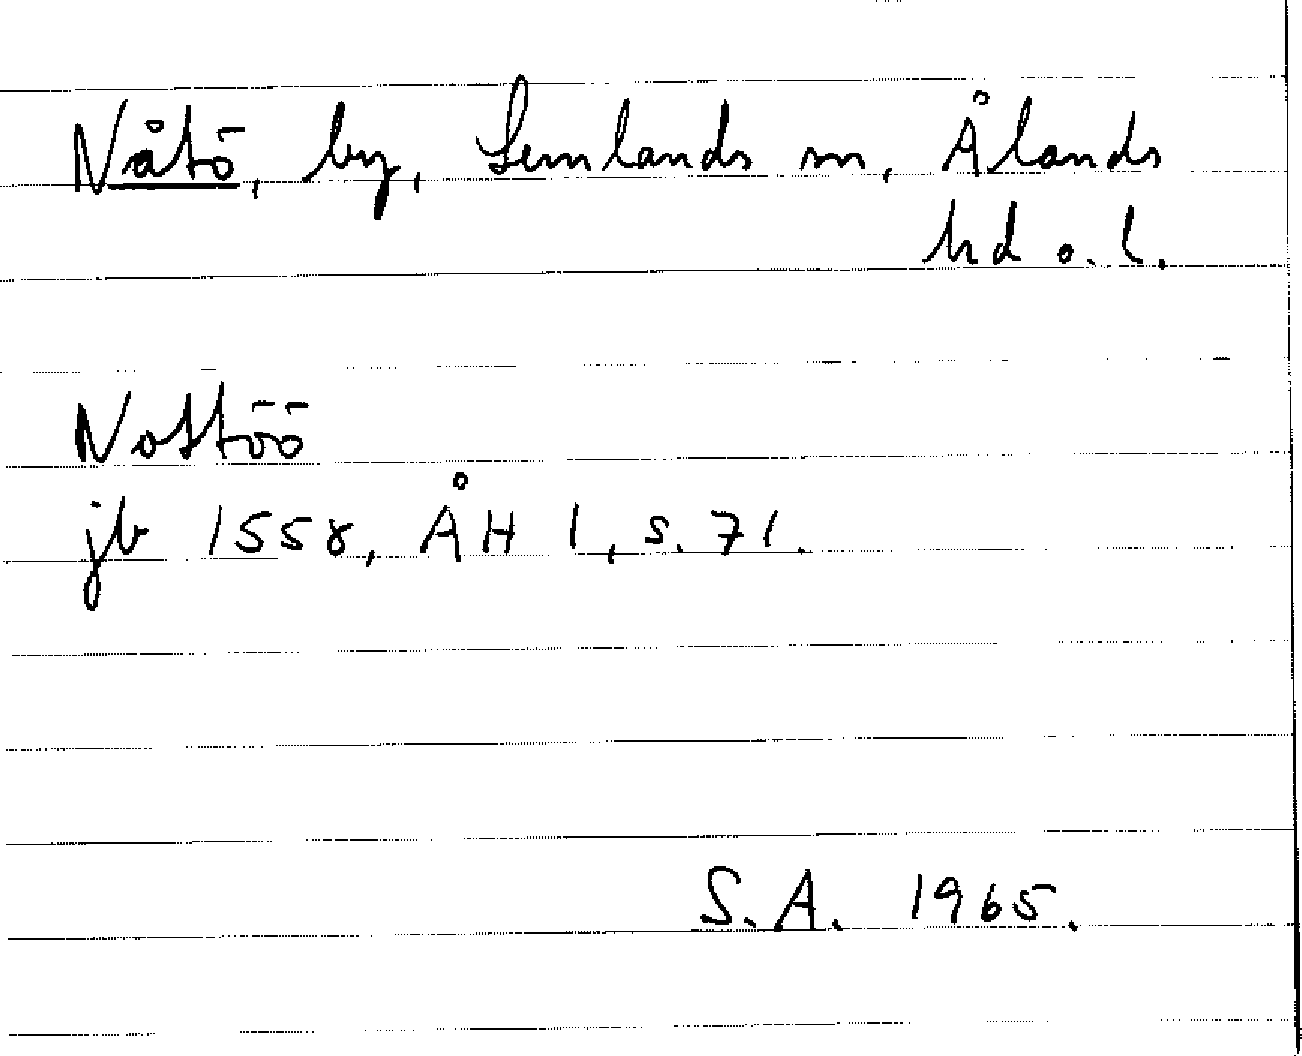 Nåtö, by, Lemlands sn, Ålands
hd o. l.
Nottöö
jb 1558, ÅH 1, s. 71.
S.A. 1965.